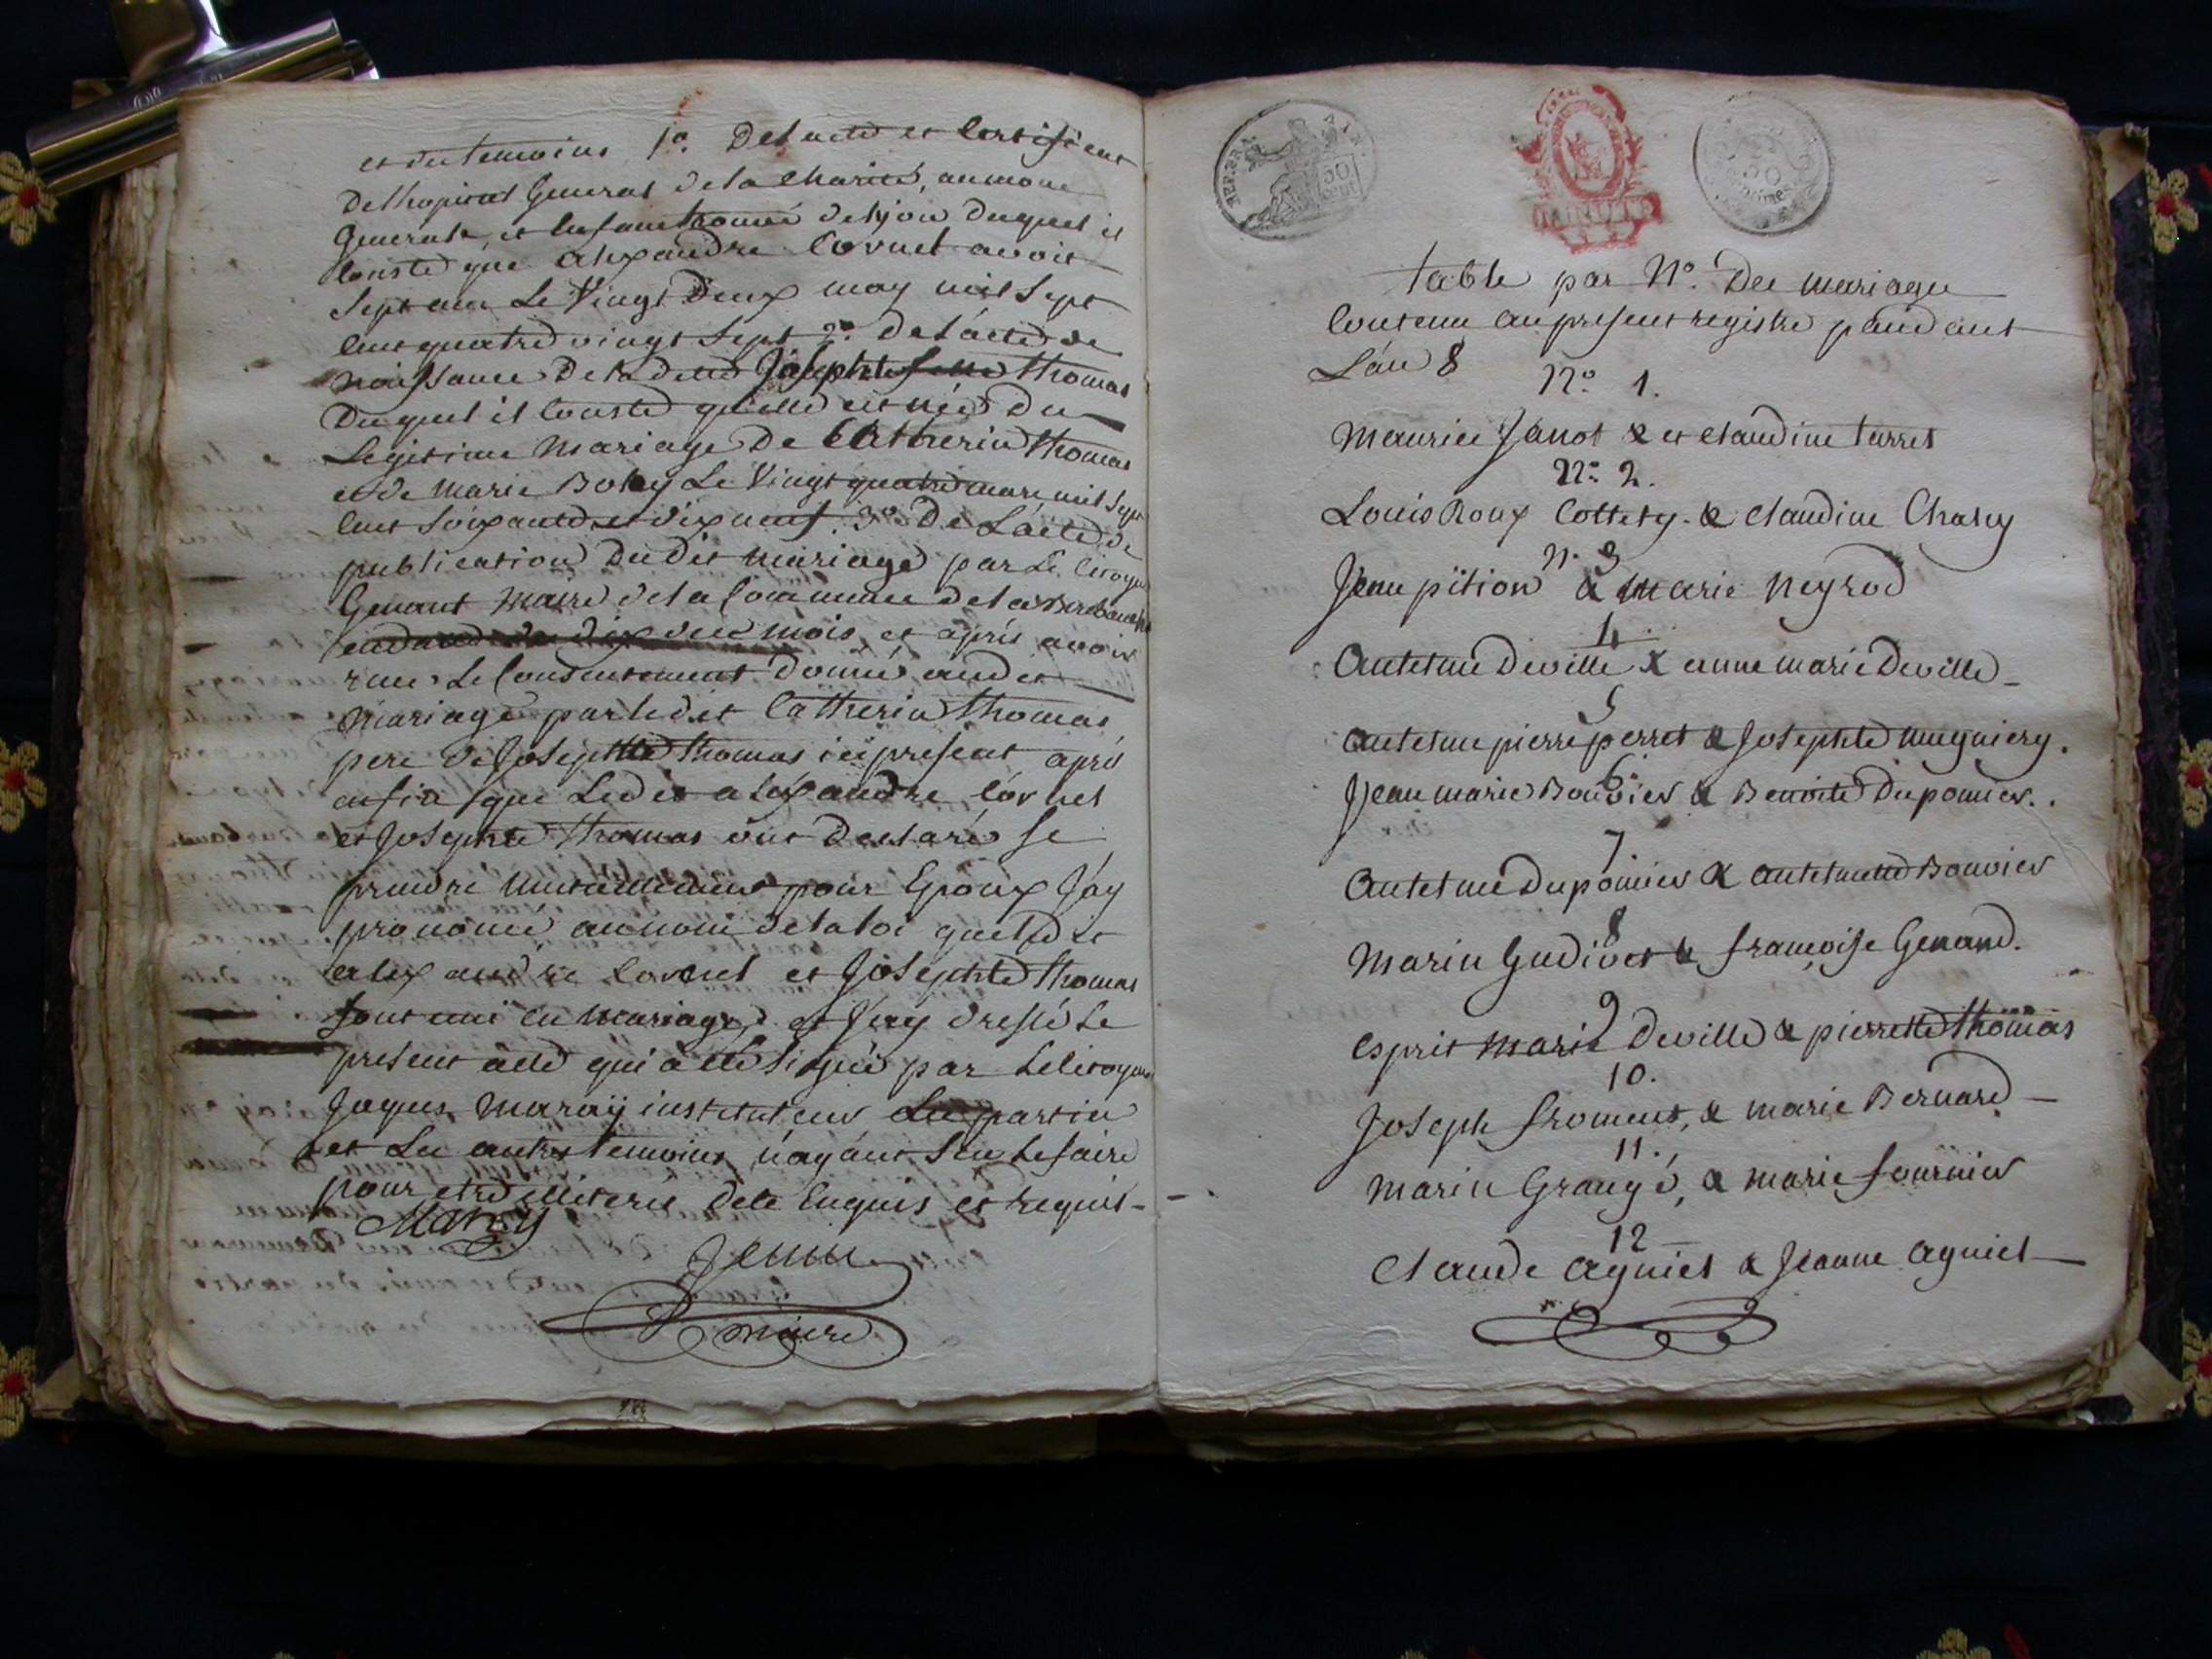 et des temoins 1o. De l'acte et Certificat
De l'hopital General de la Charité, aumone
Generale, et Enfans trouvés de Lyon Duquel il
Conste que alexandre Cornet avoit
Sept ans Le Vingt Deux may mil Sept
Cent quatre vingt Sept 2o. De l'acte de
naissance De la ditte Josephte thomas
Duquel il Conste quelle est née Du
Legitime Mariage De Catherin thomas
et de Marie Le Vingt quatre mars mil Sept
Cent Soixante et dix neuf. 3o De L'acte de
publication Dudit mariage par Le Citoyen
Genant Maire de la Commune de
mois, et après avoir
Le Consentement Donné audit
Mariage par ledit Catherin thomas
pere de Josephte thomas ici present après
enfin que Ledit alexandre Cornet
et Josephte thomas ont Declaré Se
prendre Mutuellement pour Epoux J'ay
prononcé au nom de la loi que ledit
alexandre Cornet et Josephte thomas
sont uni en Mariage, et J'ay dressé Le
present acte qui a été Signé par Le Citoyen
Jaques Maray instituteur Les parties
et Les autres temoins n'ayant Seu Le faire
pour etre illiteris de ce Enquis et Requis -
Maray
maire
REP. FRA.
50
cent
50
table par No. Des mariages
Contenu au present registre pendant
L'an 8
No. 1.
Maurice Janot & et Claudine turret
No. 2.
Louis Roux Collety. & Claudine Chary
N. 3
Jean pition & Marie Neyrod
4
Antelme Deville & anne marie Deville
5
Antelme pierre perret & Josephte mugniery.
6
Jean marie Bouvier & Benoite Dupomier.
7.
Antelme Dupomier & antelmette Bouvier
8
Marin Gudivet & françoise Genand.
9
Esprit Marie Deville & pierrette thomas
10.
Joseph froment, & marie Bernard
11.
Marin Grangé, & marie fournier
12
Claude Agniel & Jeanne Agniel